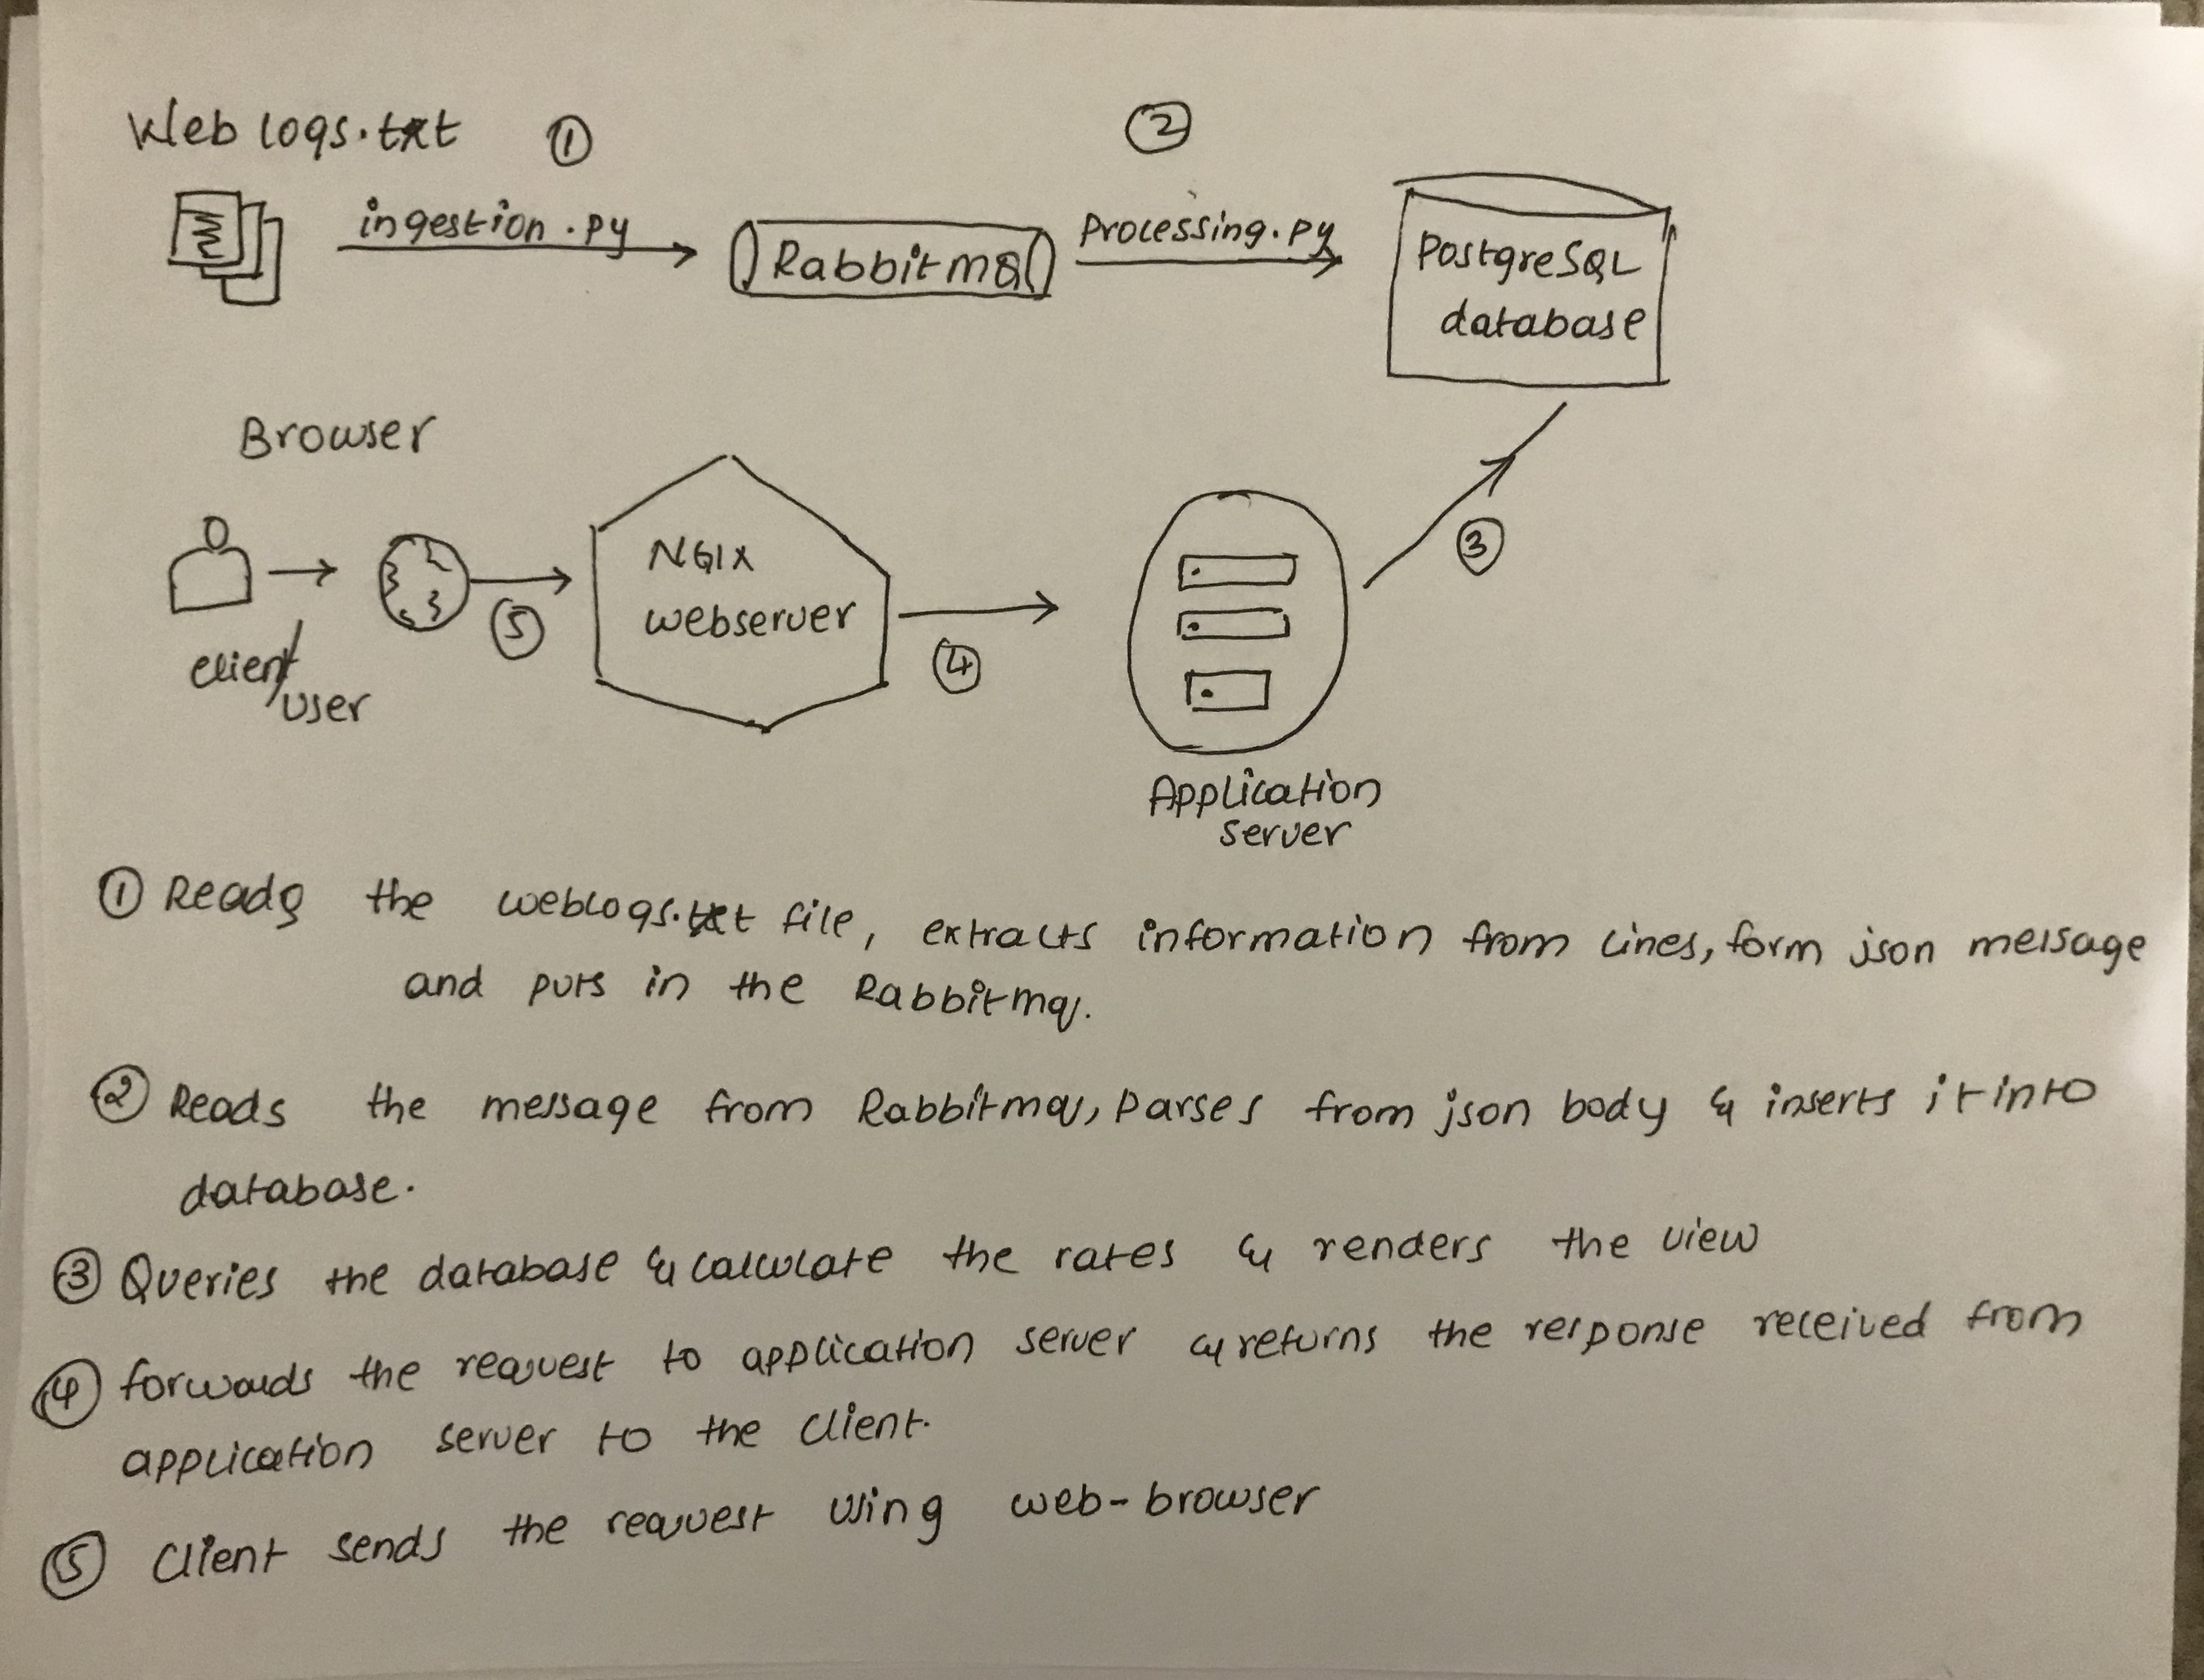 Web logs.txt ① ②
ingestion.py
Rabbitmq
Processing.py
PostgreSQL
database
Browser
NGIX
webserver
③
⑤
④
client/
user
Application
server
① Reads the weblogs.txt file, extracts information from lines, form json message
and puts in the Rabbitmq.
② Reads the message from Rabbitmq, parses from json body & inserts it into
database.
③ Queries the database & calculate the rates & renders the view
④ forwards the request to application server & returns the response received from
application server to the client.
⑤ Client sends the request using web-browser